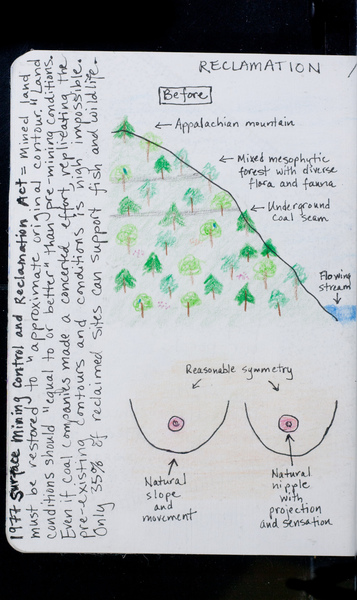 RECLAMATION
Before
Appalachian mountain
Mixed mesophytic
forest with diverse
flora and fauna
Underground
coal seam
Flowing
stream
Reasonable symmetry
Natural
slope
and
movement
Natural
nipple
with
projection
and sensation
1977 Surface Mining Control and Reclamation Act = Mined land
must be restored to "approximate original contour," Land
conditions should "equal to or better" than pre-mining conditions.
Even if coal companies made a concerted effort, replicating the
pre-existing contours and conditions is nigh impossible.
Only 35% of reclaimed sites can support fish and wildlife.